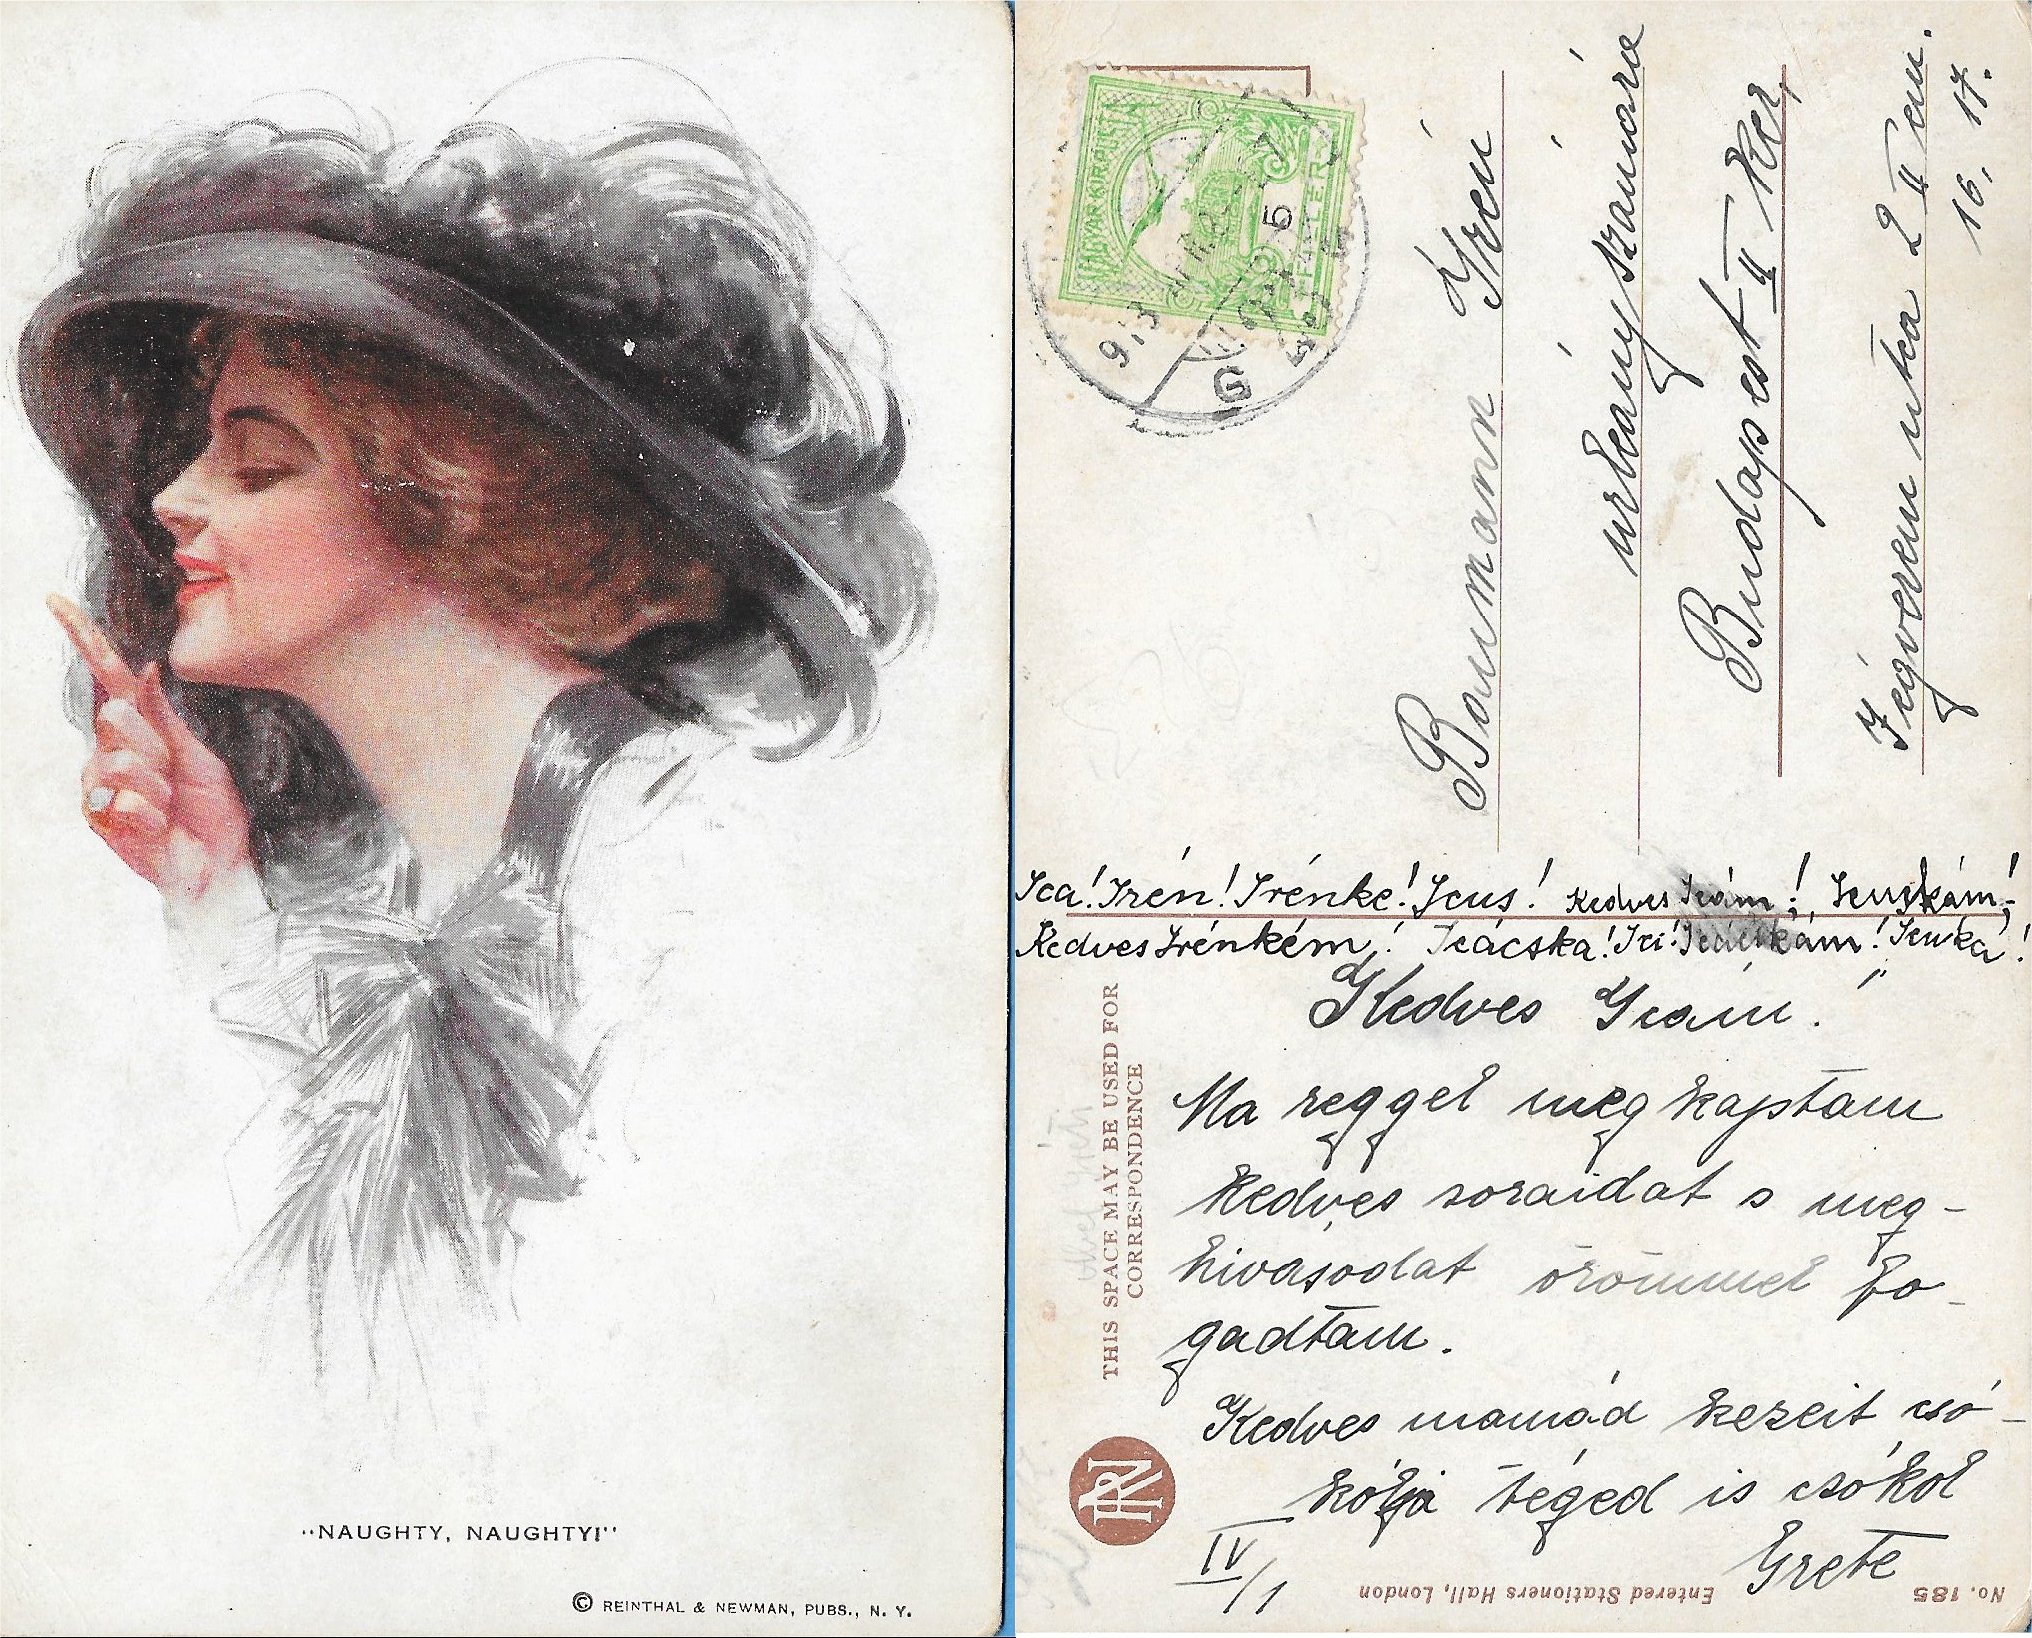 "NAUGHTY, NAUGHTY!"
© REINTHAL & NEWMAN, PUBS., N. Y.
MAGYAR KIR. POSTA
913
5
Baumann Irén
urleány számára
Budapest II Ker,
Fegyverem utca 2 II em.
16. 17.
Ica! Irén! Irénke! Icus! Kedves Icám! Icuskám!
Kedves Irénkém! Icácska! Ici! Icácskám! Icuka!
Kedves Icám!
Ma reggel megkaptam
kedves soraidat s meg-
hivásodat örömmel fo-
gadtam.
Kedves mamád kezeit csó-
kolja téged is csókol
Grete
IV/1
THIS SPACE MAY BE USED FOR
CORRESPONDENCE
RN
No. 185
Entered Stationers Hall, London